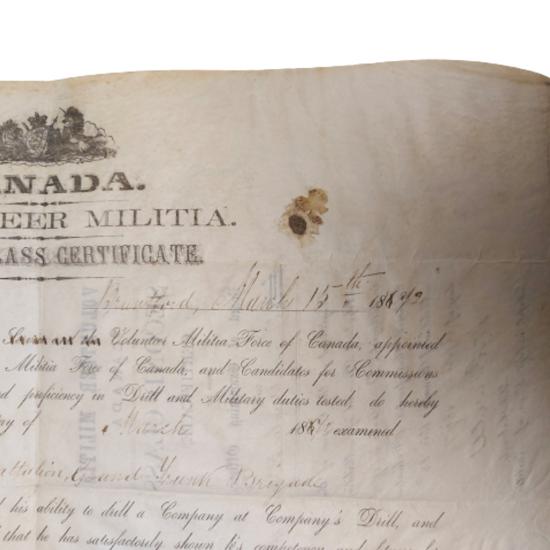 NADA.
EER MILITIA.
LASS CERTIFICATE.
Brantford, March 15th 18
Volunteer Militia Force of Canada, appointed
Militia Force of Canada, and Candidates for Commissions
d proficiency in Drill and Military duties tested, do hereby
ay of March 18 examined
attalion, Grand Trunk Brigade
d his ability to drill a Company at Company's Drill, and
that he has satisfactorily shown his competency and